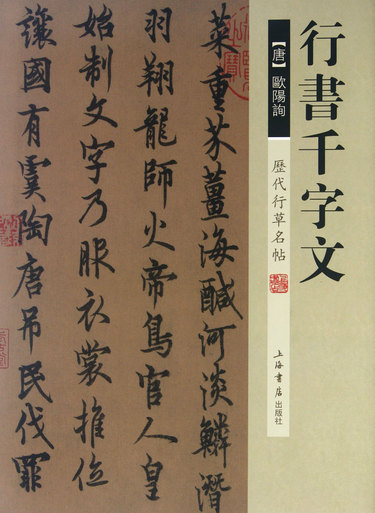 行書千字文
【唐】歐陽詢
歷代行草名帖
上海書店出版社
菜重芥薑海醎河淡鱗潛
羽翔龍師火帝鳥官人皇
始制文字乃服衣裳推位
讓國有虞陶唐吊民伐罪